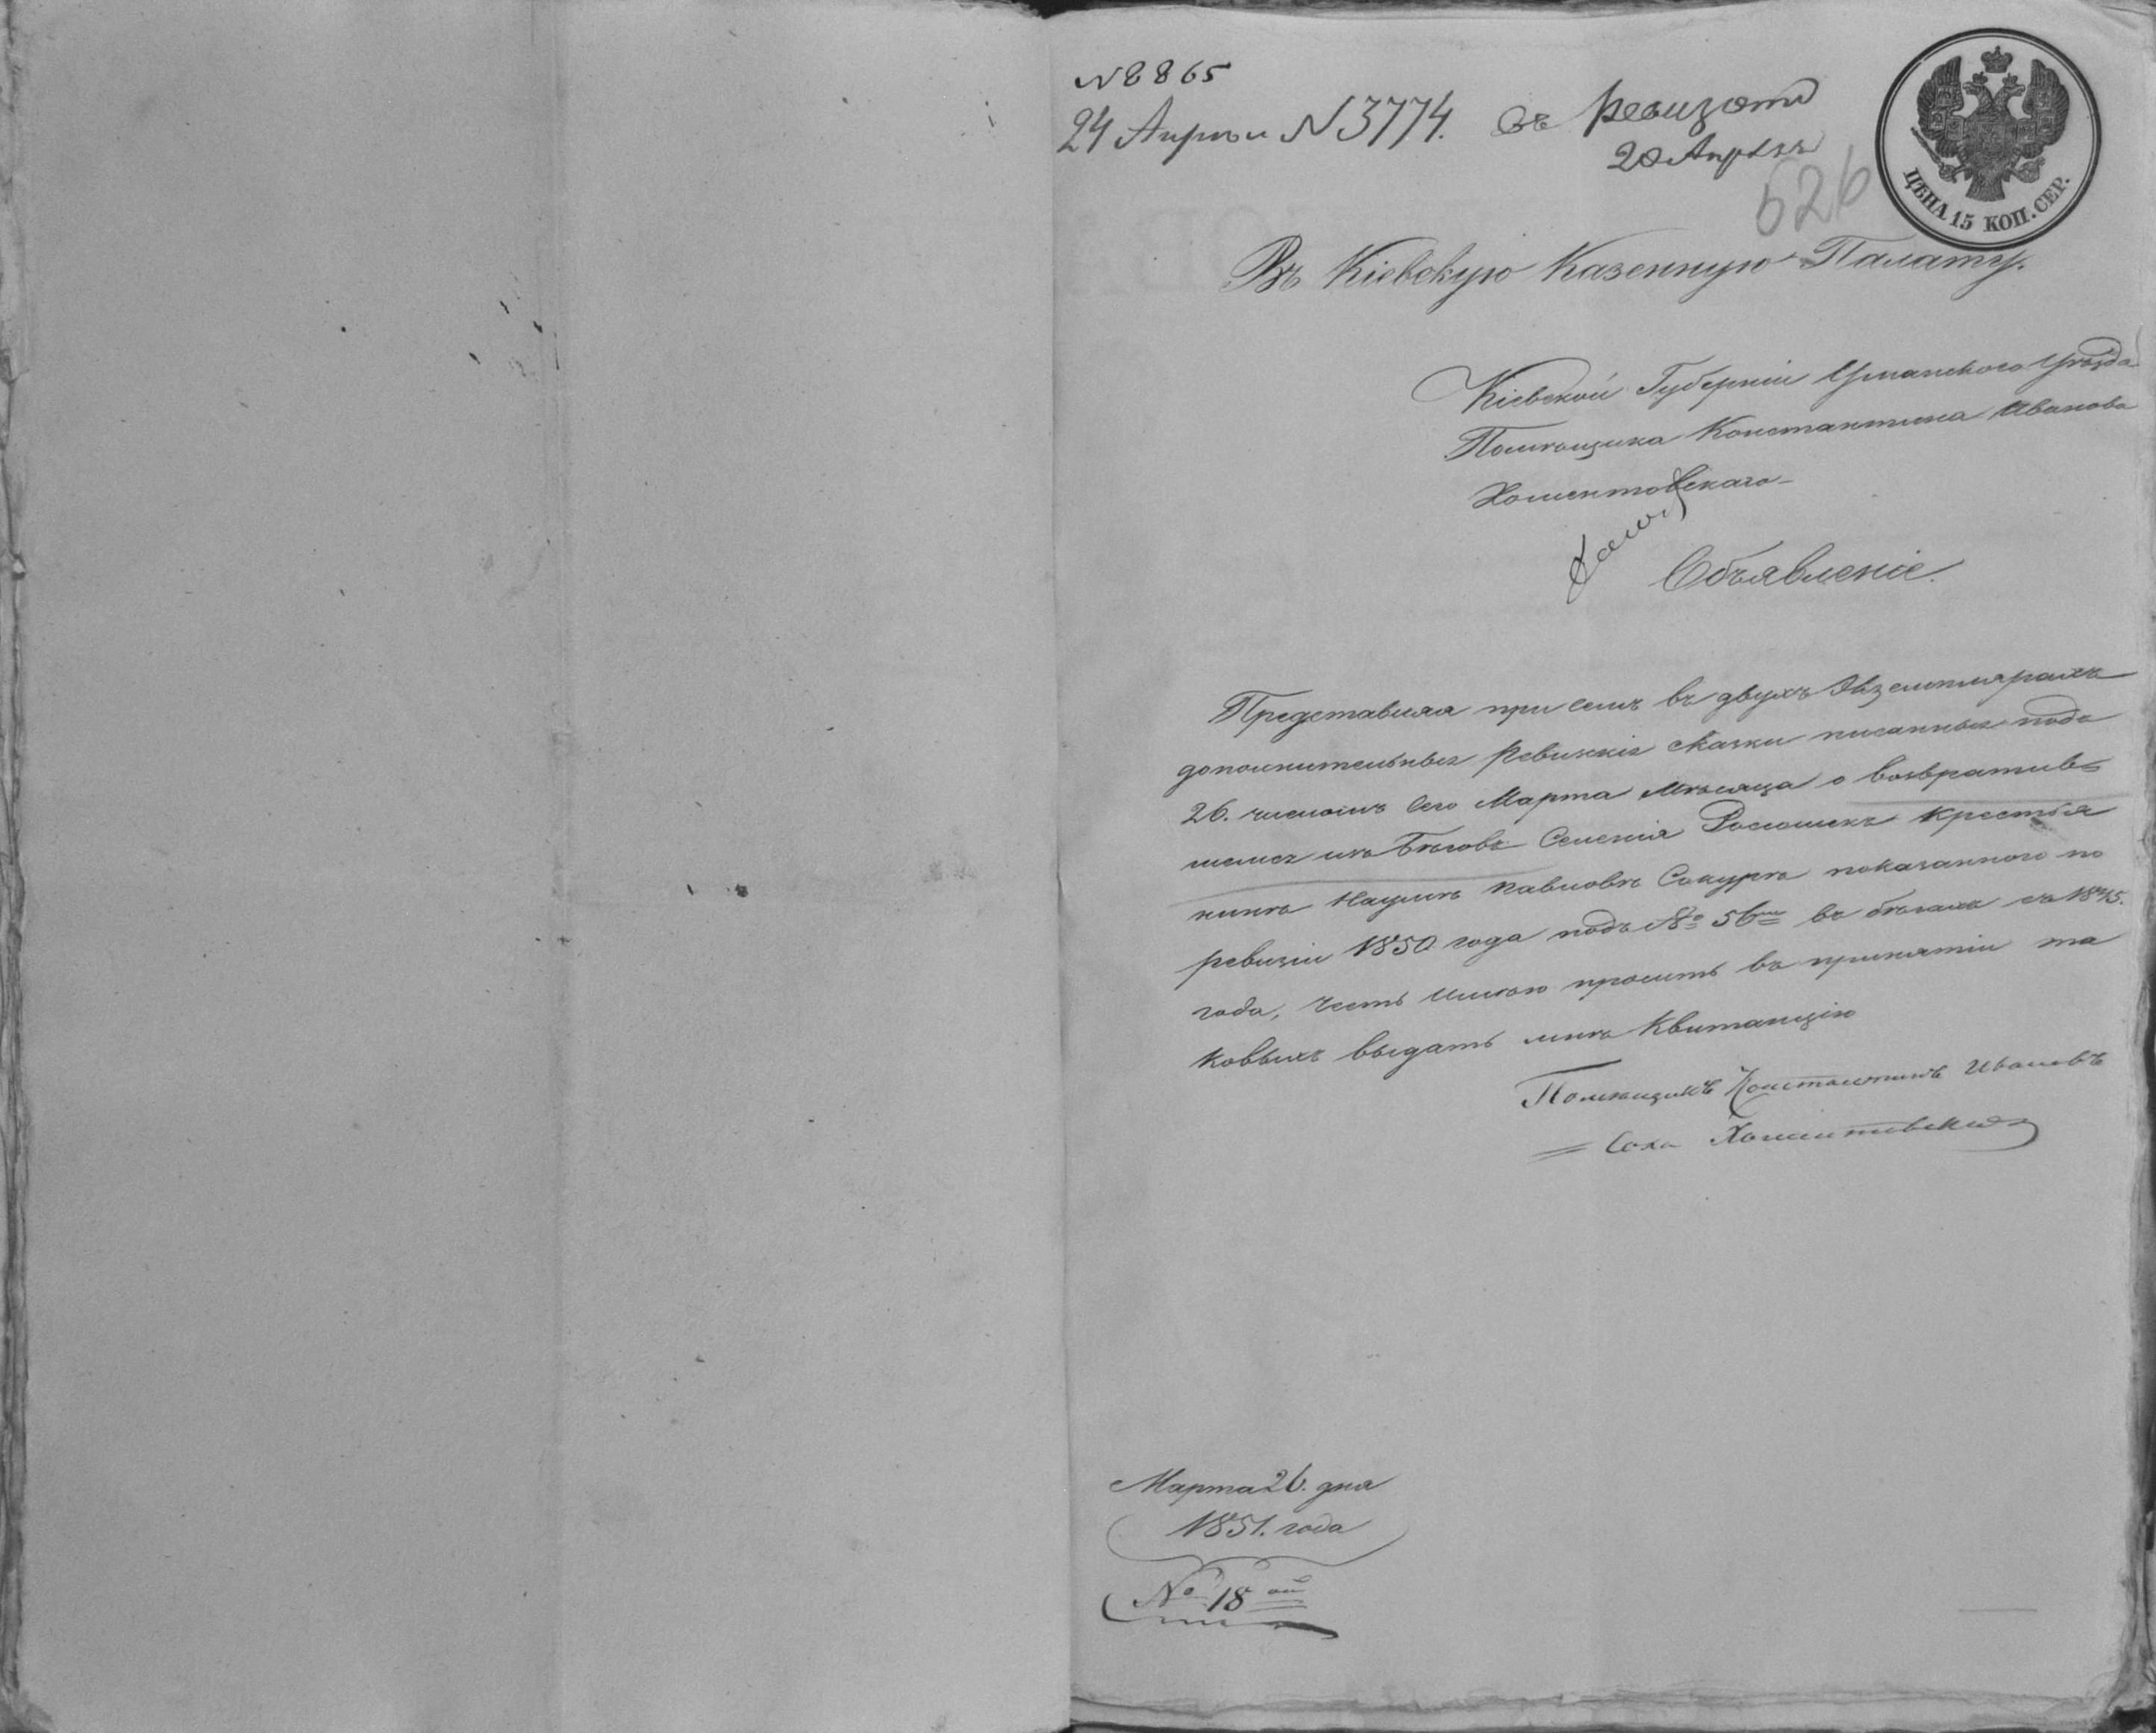 № 8865
24 Апрѣл № 3774. въ Ревизот
28 Апрѣля
626
ЦѢНА 15 КОП. СЕР.
Въ Кіевскую Казенную Палату.
Кіевской Губерніи Уманского Уѣзда
Помѣщика Константина Иванова
Хоментовскаго
Объявленіе.
Представляя при семъ въ двухъ Экземплярахъ
дополнительныя Ревизкіе сказки писанныя подъ
26. числомъ сего Марта Мѣсяца о возвратив
шемся изъ Бѣговъ Селенія Росошекъ Крестья
нинѣ Наумѣ Павловѣ Сокурѣ показанного по
ревизіи 1850 года подъ № 56м въ бѣгахъ съ 1845.
года, Честь имѣю просить въ принятіи та
ковыхъ выдать мнѣ Квитанцію
Помѣщикъ Константинъ Ивановъ
Соха Хоментовскій
Марта 26. дня
1851. года
№ 18ой